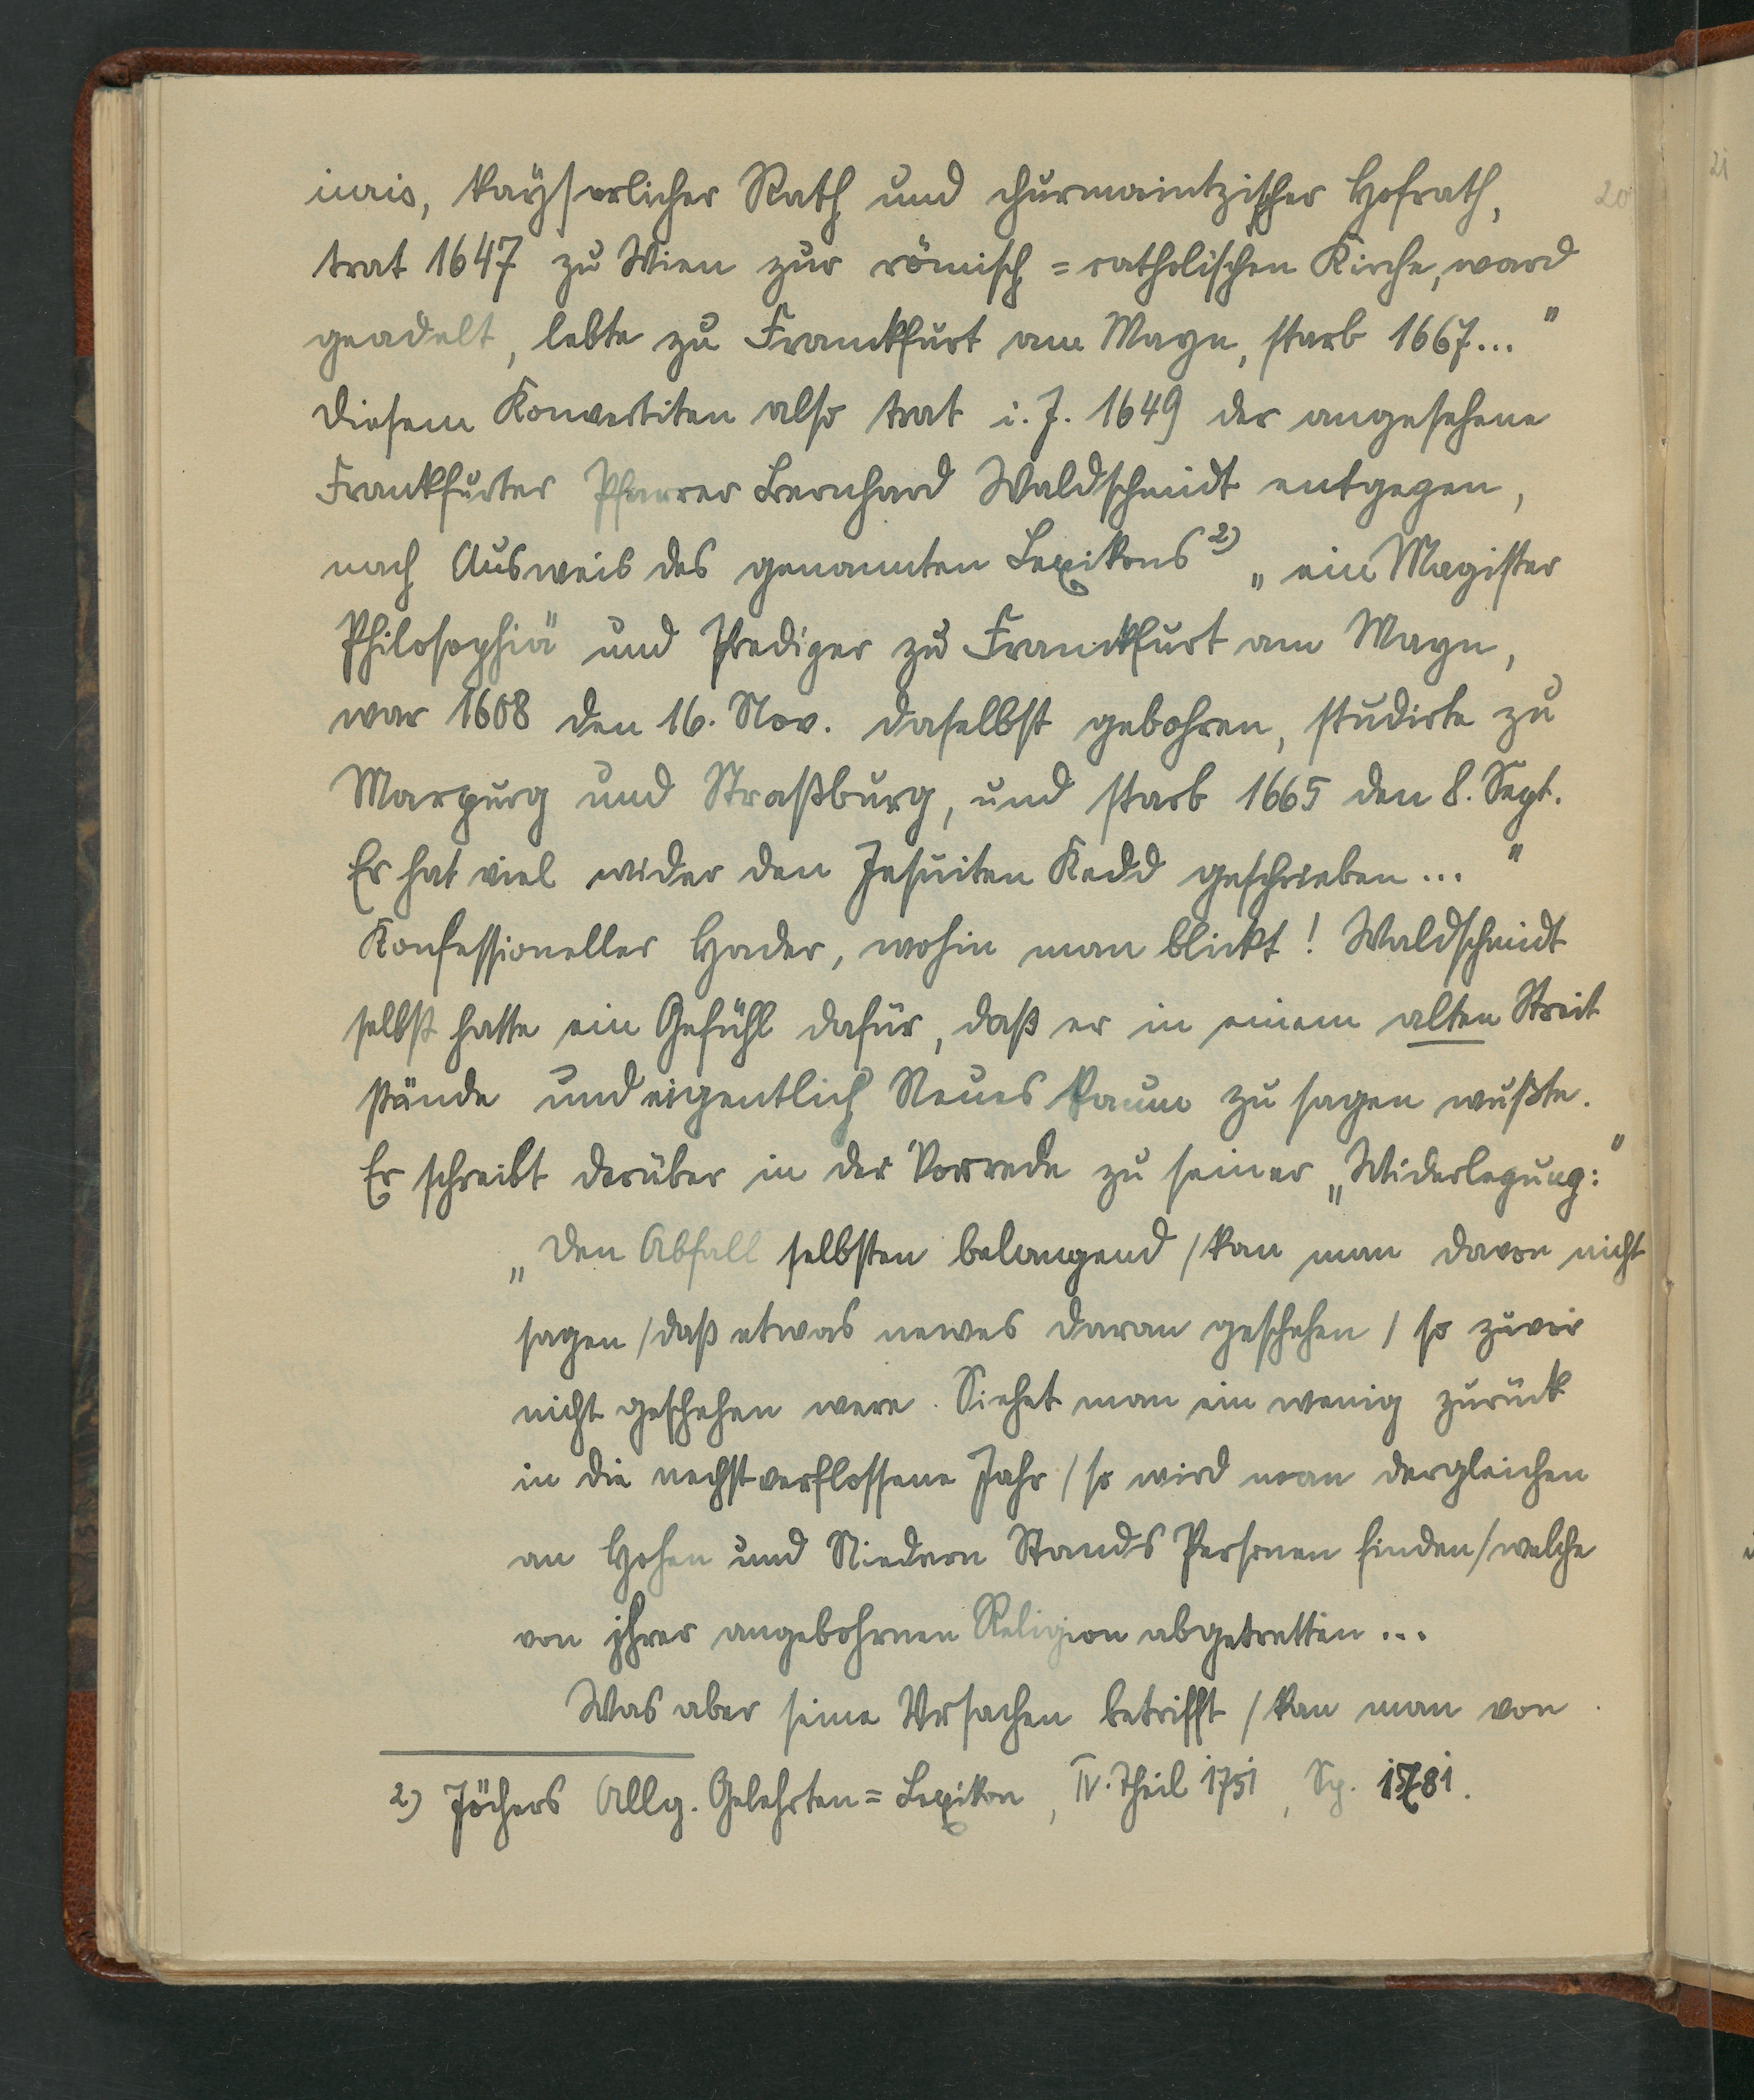 iuris, kayserlicher Rath und churmaintzischer Hofrath,
20
21
trat 1647 zu Wien zur römisch=catholischen Kirche, ward
geadelt, lebte zu Franckfurt am Mayn, starb 1667..."
Diesem Konvertiten also trat i. J. 1649 der angesehene
Frankfurter Pfarrer Bernhard Waldschmidt entgegen,
nach Ausweis des genannten Lexikons 2) „ein Magister
Philosophiä und Prediger zu Franckfurt am Mayn,
war 1608 den 16. Nov. daselbst gebohren, studirte zu
Marpurg und Straßburg, und starb 1665 den 8. Sept.
Er hat viel wider den Jesuiten Kedd geschrieben..."
Konfessioneller Hader, wohin man blickt! Waldschmidt
selbst hatte ein Gefühl dafür, daß er in einem alten Streit
stünde und eigentlich Neues kaum zu sagen wußte.
Er schreibt darüber in der Vorrede zu seiner „Widerlegung:"
„Den Abfall selbsten belangend / kan man davon nicht
sagen / daß etwas newes daran geschehen / so zuvor
nicht geschehen were. Siehet man ein wenig zurück
in die nechstverflossene Jahr / so wird man dergleichen
an Hohen und Niedern Stands Personen finden / welche
von jhrer angebohrnen Religion abgetretten...
Was aber seine Vrsachen betrifft / kan man von
2) Jöchers Allg. Gelehrten=Lexikon, IV. Theil 1751, Sp. 1781.